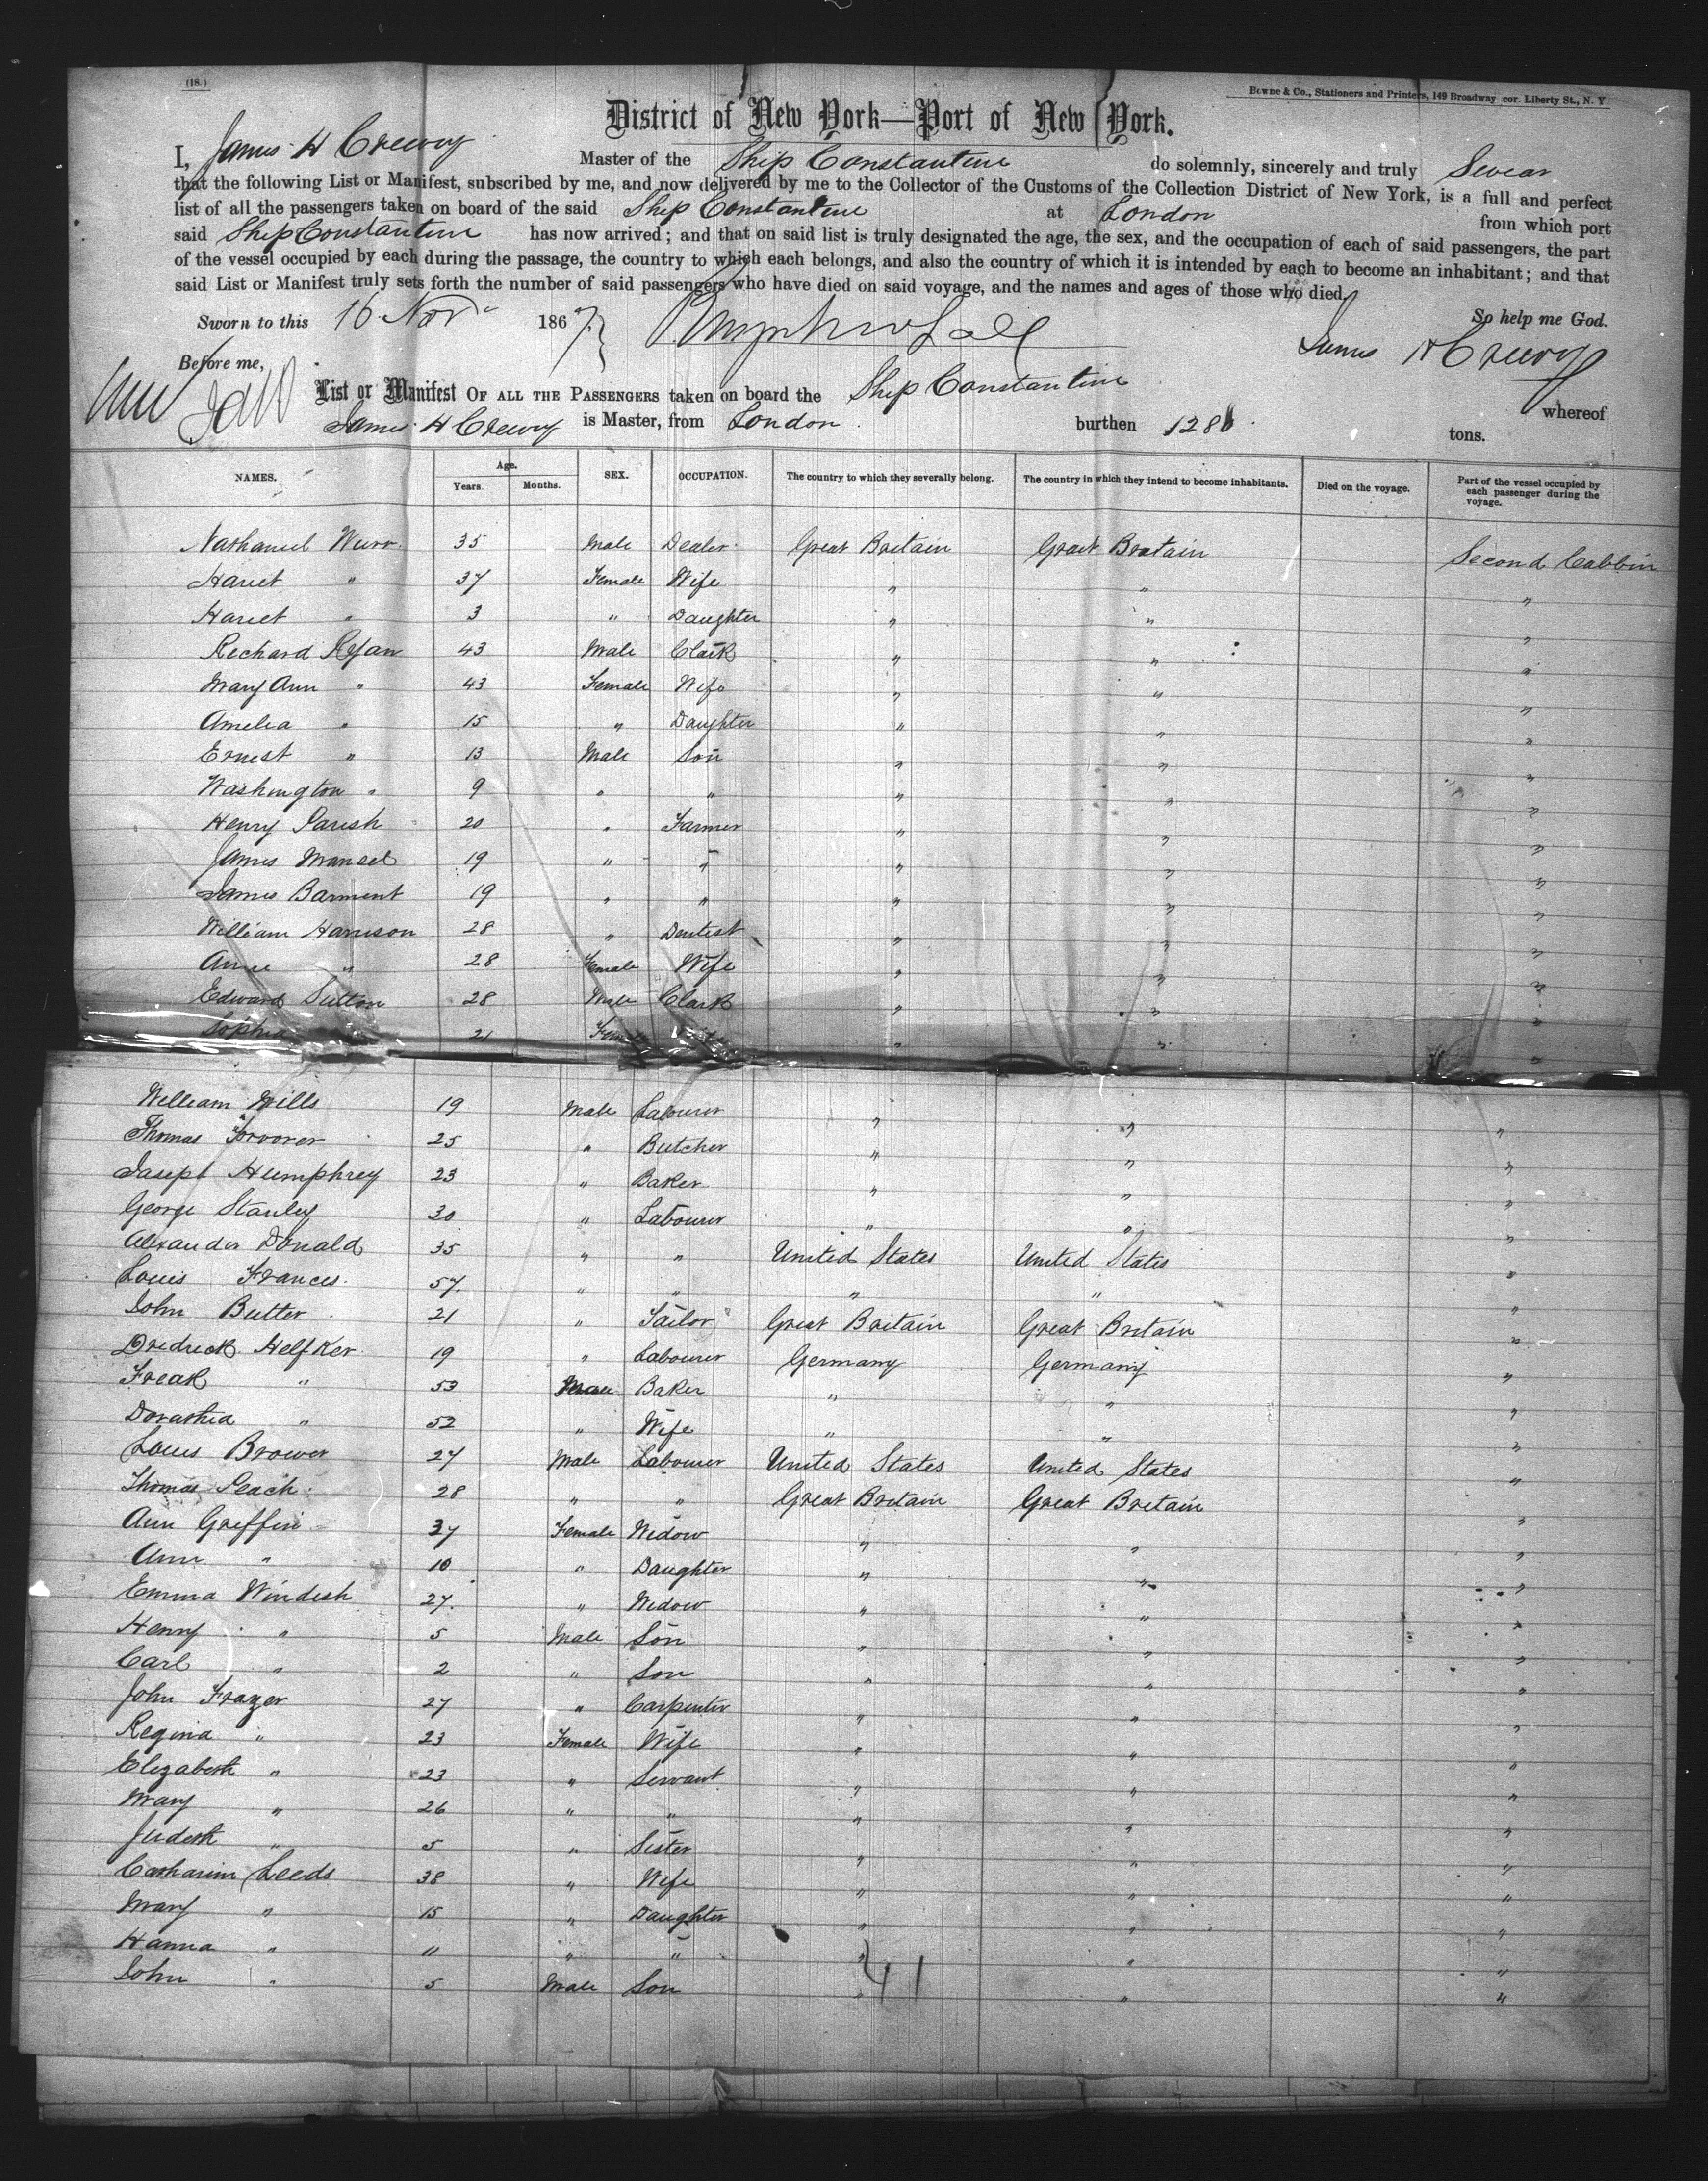 (18.)
Bowne & Co., Stationers and Printers, 149 Broadway cor. Liberty St., N. Y
District of New York—Port of New York.
I, James H Creevy Master of the Ship Constantine do solemnly, sincerely and truly Swear
that the following List or Manifest, subscribed by me, and now delivered by me to the Collector of the Customs of the Collection District of New York, is a full and perfect
list of all the passengers taken on board of the said Ship Constantine at London from which port
said Ship Constantine has now arrived; and that on said list is truly designated the age, the sex, and the occupation of each of said passengers, the part
of the vessel occupied by each during the passage, the country to which each belongs, and also the country of which it is intended by each to become an inhabitant; and that
said List or Manifest truly sets forth the number of said passengers who have died on said voyage, and the names and ages of those who died.
Sworn to this 16 Nov 1867 So help me God.
Before me, James H Creevy
List or Manifest OF ALL THE PASSENGERS taken on board the Ship Constantine whereof
James H Creevy is Master, from London burthen 1280 tons.
NAMES. Age. Years. Months. SEX. OCCUPATION. The country to which they severally belong. The country in which they intend to become inhabitants. Died on the voyage. Part of the vessel occupied by each passenger during the voyage.
Nathaniel Wurr 35 Male Dealer Great Britain Great Britain Second Cabbin
Hariet " 37 Female Wife " " "
Hariet " 3 " Daughter " " "
Richard Ryan 43 Male Clark " " "
Mary Ann " 43 Female Wife " " "
Amelia " 15 " Daughter " " "
Ernest " 13 Male Son " " "
Washington " 9 " " " " "
Henry Parish 20 " Farmer " " "
James Mansel 19 " " " " "
James Barment 19 " " " " "
William Harrison 28 " Dentist " " "
Anne " 28 Female Wife " " "
Edward Sutton 28 Male Clark " " "
Sophia 21 Female " " "
William Wills 19 Male Labourer " " "
Thomas 25 " Butcher " " "
Joseph Humphrey 23 " Baker " " "
George Stanley 30 " Labourer " " "
Alexander Donald 35 " " United States United States "
Louis Frances 57 " " " " "
John Butter 21 " Tailor Great Britain Great Britain "
Dredrick Helfker 19 " Labourer Germany Germany "
Freak " 53 Male Baker " " "
Dorathea " 52 " Wife " " "
Louis Brower 27 Male Labourer United States United States "
Thomas Leach 28 " " Great Britain Great Britain "
Ann Griffin 37 Female Widow " " "
Ann " 10 " Daughter " " "
Emma Windish 27 " Widow " " "
Henry " 5 Male Son " " "
Carl " 2 " Son " " "
John Frazer 27 " Carpenter " " "
Regina " 23 Female Wife " " "
Elizabeth " 23 " Servant " " "
Mary " 26 " " " " "
Judith " 5 " Sister " " "
Catharine Leeds 38 " Wife " " "
Mary " 15 " Daughter " " "
Hanna " 11 " " " " "
John " 5 Male Son " " "
41